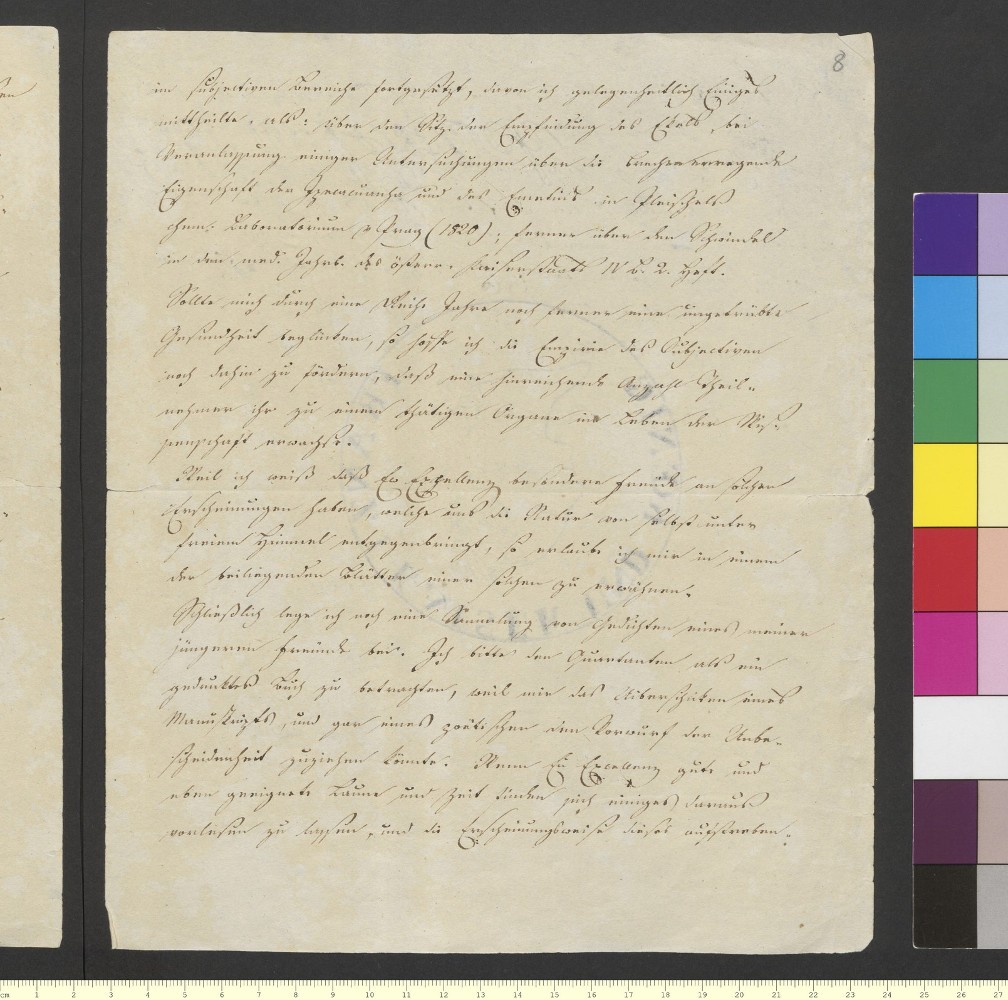 8
im subjectiven Bereiche fortgesetzt, davon ich gelegenheitlich Einiges
mittheilte, als: über den Sitz der Empfindung des Ekels, bei
Veranlassung einiger Untersuchungen über die brechenerregende
Eigenschaft der Ipecacuanha und des Emetins in Pleischels
chem. Laboratorium z Prag (1820); ferner über den Schwindel
in den med. Jahrb. des österr. Kaiserstaats IV B. 2. Heft.
Sollte mich durch eine Reihe Jahre noch ferner eine ungetrübte
Gesundheit beglücken, so hoffe ich die Empirie des Subjectiven
noch dahin zu fördern, daß eine hinreichende Anzahl Theil-
nehmer ihr zu einem thätigen Organe im Leben der Wis-
senschaft erwachse.
Weil ich weiß daß Eu Exzellenz besondere Freude an solchen
Erscheinungen haben, welche uns die Natur von selbst unter
freiem Himmel entgegenbringt, so erlaube ich mir in einem
der beiliegenden Blätter einer solchen zu erwähnen.
Schließlich lege ich noch eine Sammlung von Gedichten eines meiner
jüngeren Freunde bei. Ich bitte den Quartanten als ein
gedrucktes Buch zu betrachten, weil mir das Überschicken eines
Manuskripts, und gar eines poëtischen den Vorwurf der Unbe-
scheidenheit zuziehen könnte. Wenn Eu Excellenz gute und
eben geeignete Laune und Zeit finden sich einiges daraus
vorlesen zu lassen, und die Erscheinungsweise dieses aufstreben-